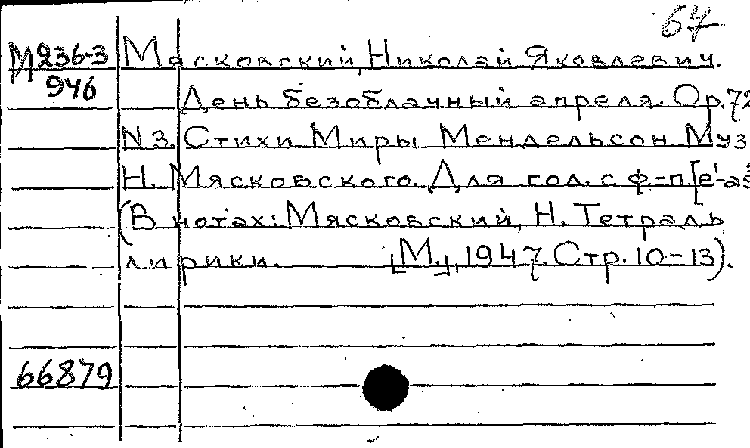 64
М236-3 Мясковский, Николай Яковлевич.
946 День безоблачный апреля. Op.72
N3. Стихи Миры Мендельсон. Муз
Н. Мясковского. Для гол. с ф-п.
(В нотах: Мясковский, Н. Тетрадь
лирики. [М.], 1947. Стр. 10-13).
66879